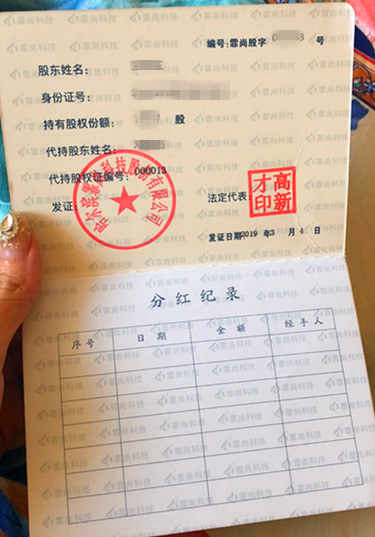 编号:霏尚股字 0 3 号
股东姓名:
身份证号:
持有股权份额: 股
代持股东姓名:
代持股权证编号: 000013
发证
法定代表
高新才印
发证日期2019 年3 月 4 日
分红纪录
序号 日期 金额 经手人